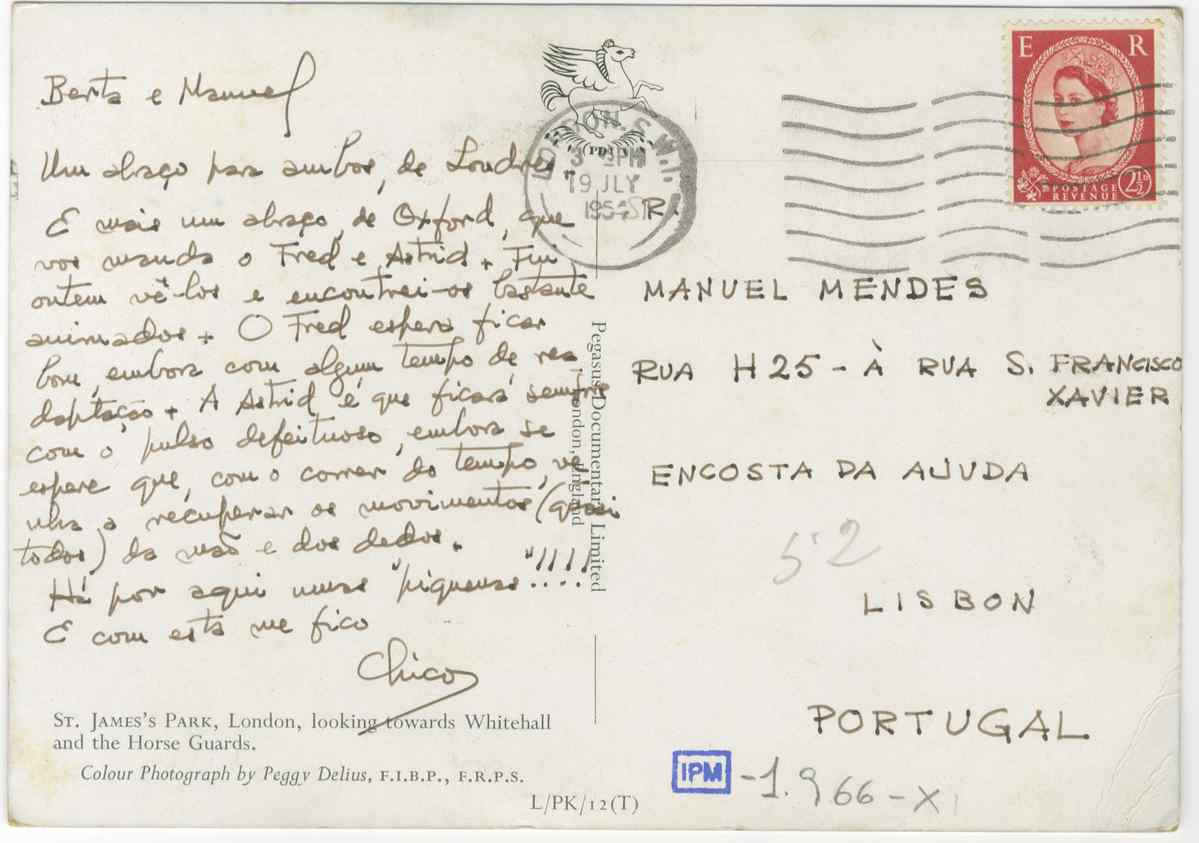 Berta e Manuel
Um abraço para ambos, de Londres.
E mais um abraço, de Oxford, que
vos manda o Fred e Astrid. Fui
ontem vê-los e encontrei-os bastante
animados. O Fred espera ficar
bom, embora com algum tempo de rea-
daptação. A Astrid é que ficará sempre
com o pulso defeituoso, embora se
espere que, com o correr do tempo, ve-
nha a recuperar os movimentos (quasi
todos) da mão e dos dedos.
Há por aqui umas "piquenas"!!!!
E com esta me fico
Chico
ST. JAMES'S PARK, London, looking towards Whitehall
and the Horse Guards.
Colour Photograph by Peggy Delius, F.I.B.P., F.R.P.S.
L/PK/12(T)
Pegasus Documentary Limited
London, England
PDL
LONDON. S.W.1.
3 PM
19 JLY
E R
POSTAGE
REVENUE
2½D
SR.
MANUEL MENDES
RUA H25 - À RUA S. FRANCISCO
XAVIER
ENCOSTA DA AJUDA
52
LISBON
PORTUGAL
IPM -1.966-X